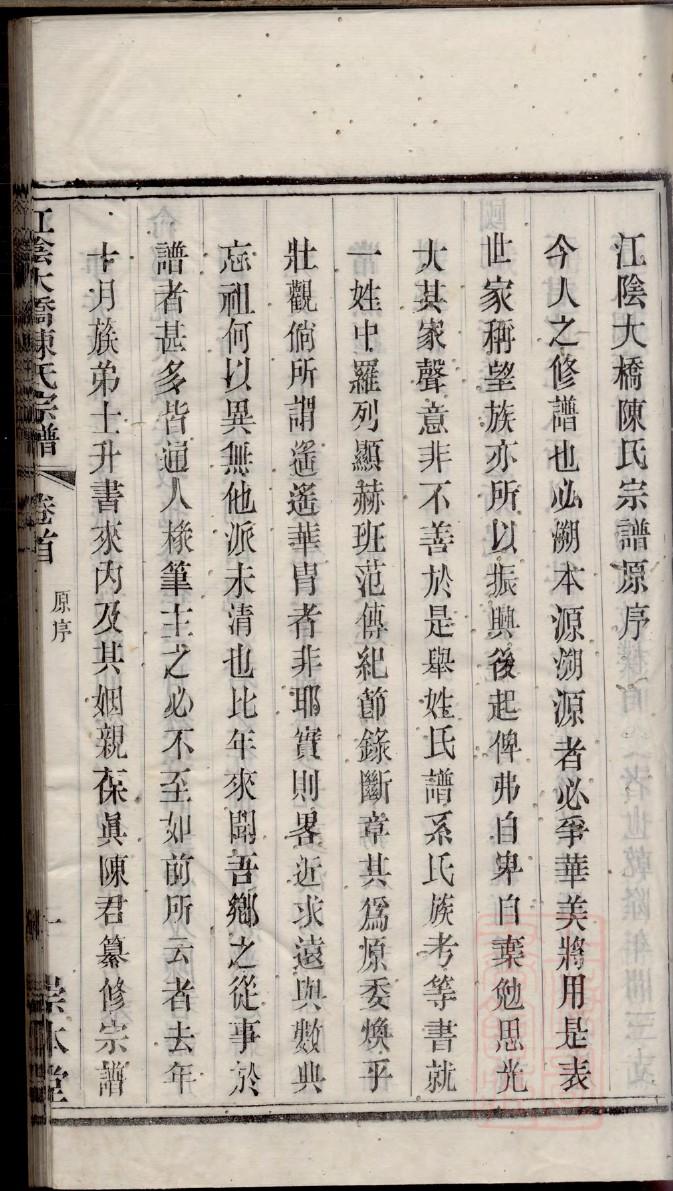 江陰大橋陳氏宗譜原序
今人之修譜也必溯本源溯源者必爭華美將用是表
世家稱望族亦所以振興後起俾弗自卑自棄勉思光
大其家聲意非不善於是舉姓氏譜系氏族考等書就
一姓中羅列顯赫班范傳紀節錄斷章其爲原委煥乎
壯觀倘所謂遙遙華冑者非耶實則畧近求遠與數典
忘祖何以異無他派未清也比年來聞吾鄉之從事於
譜者甚多皆通人椽筆主之必不至如前所云者去年
十月族弟士升書來內及其姻親葆眞陳君纂修宗譜
江陰大橋陳氏宗譜 卷首 原序 一